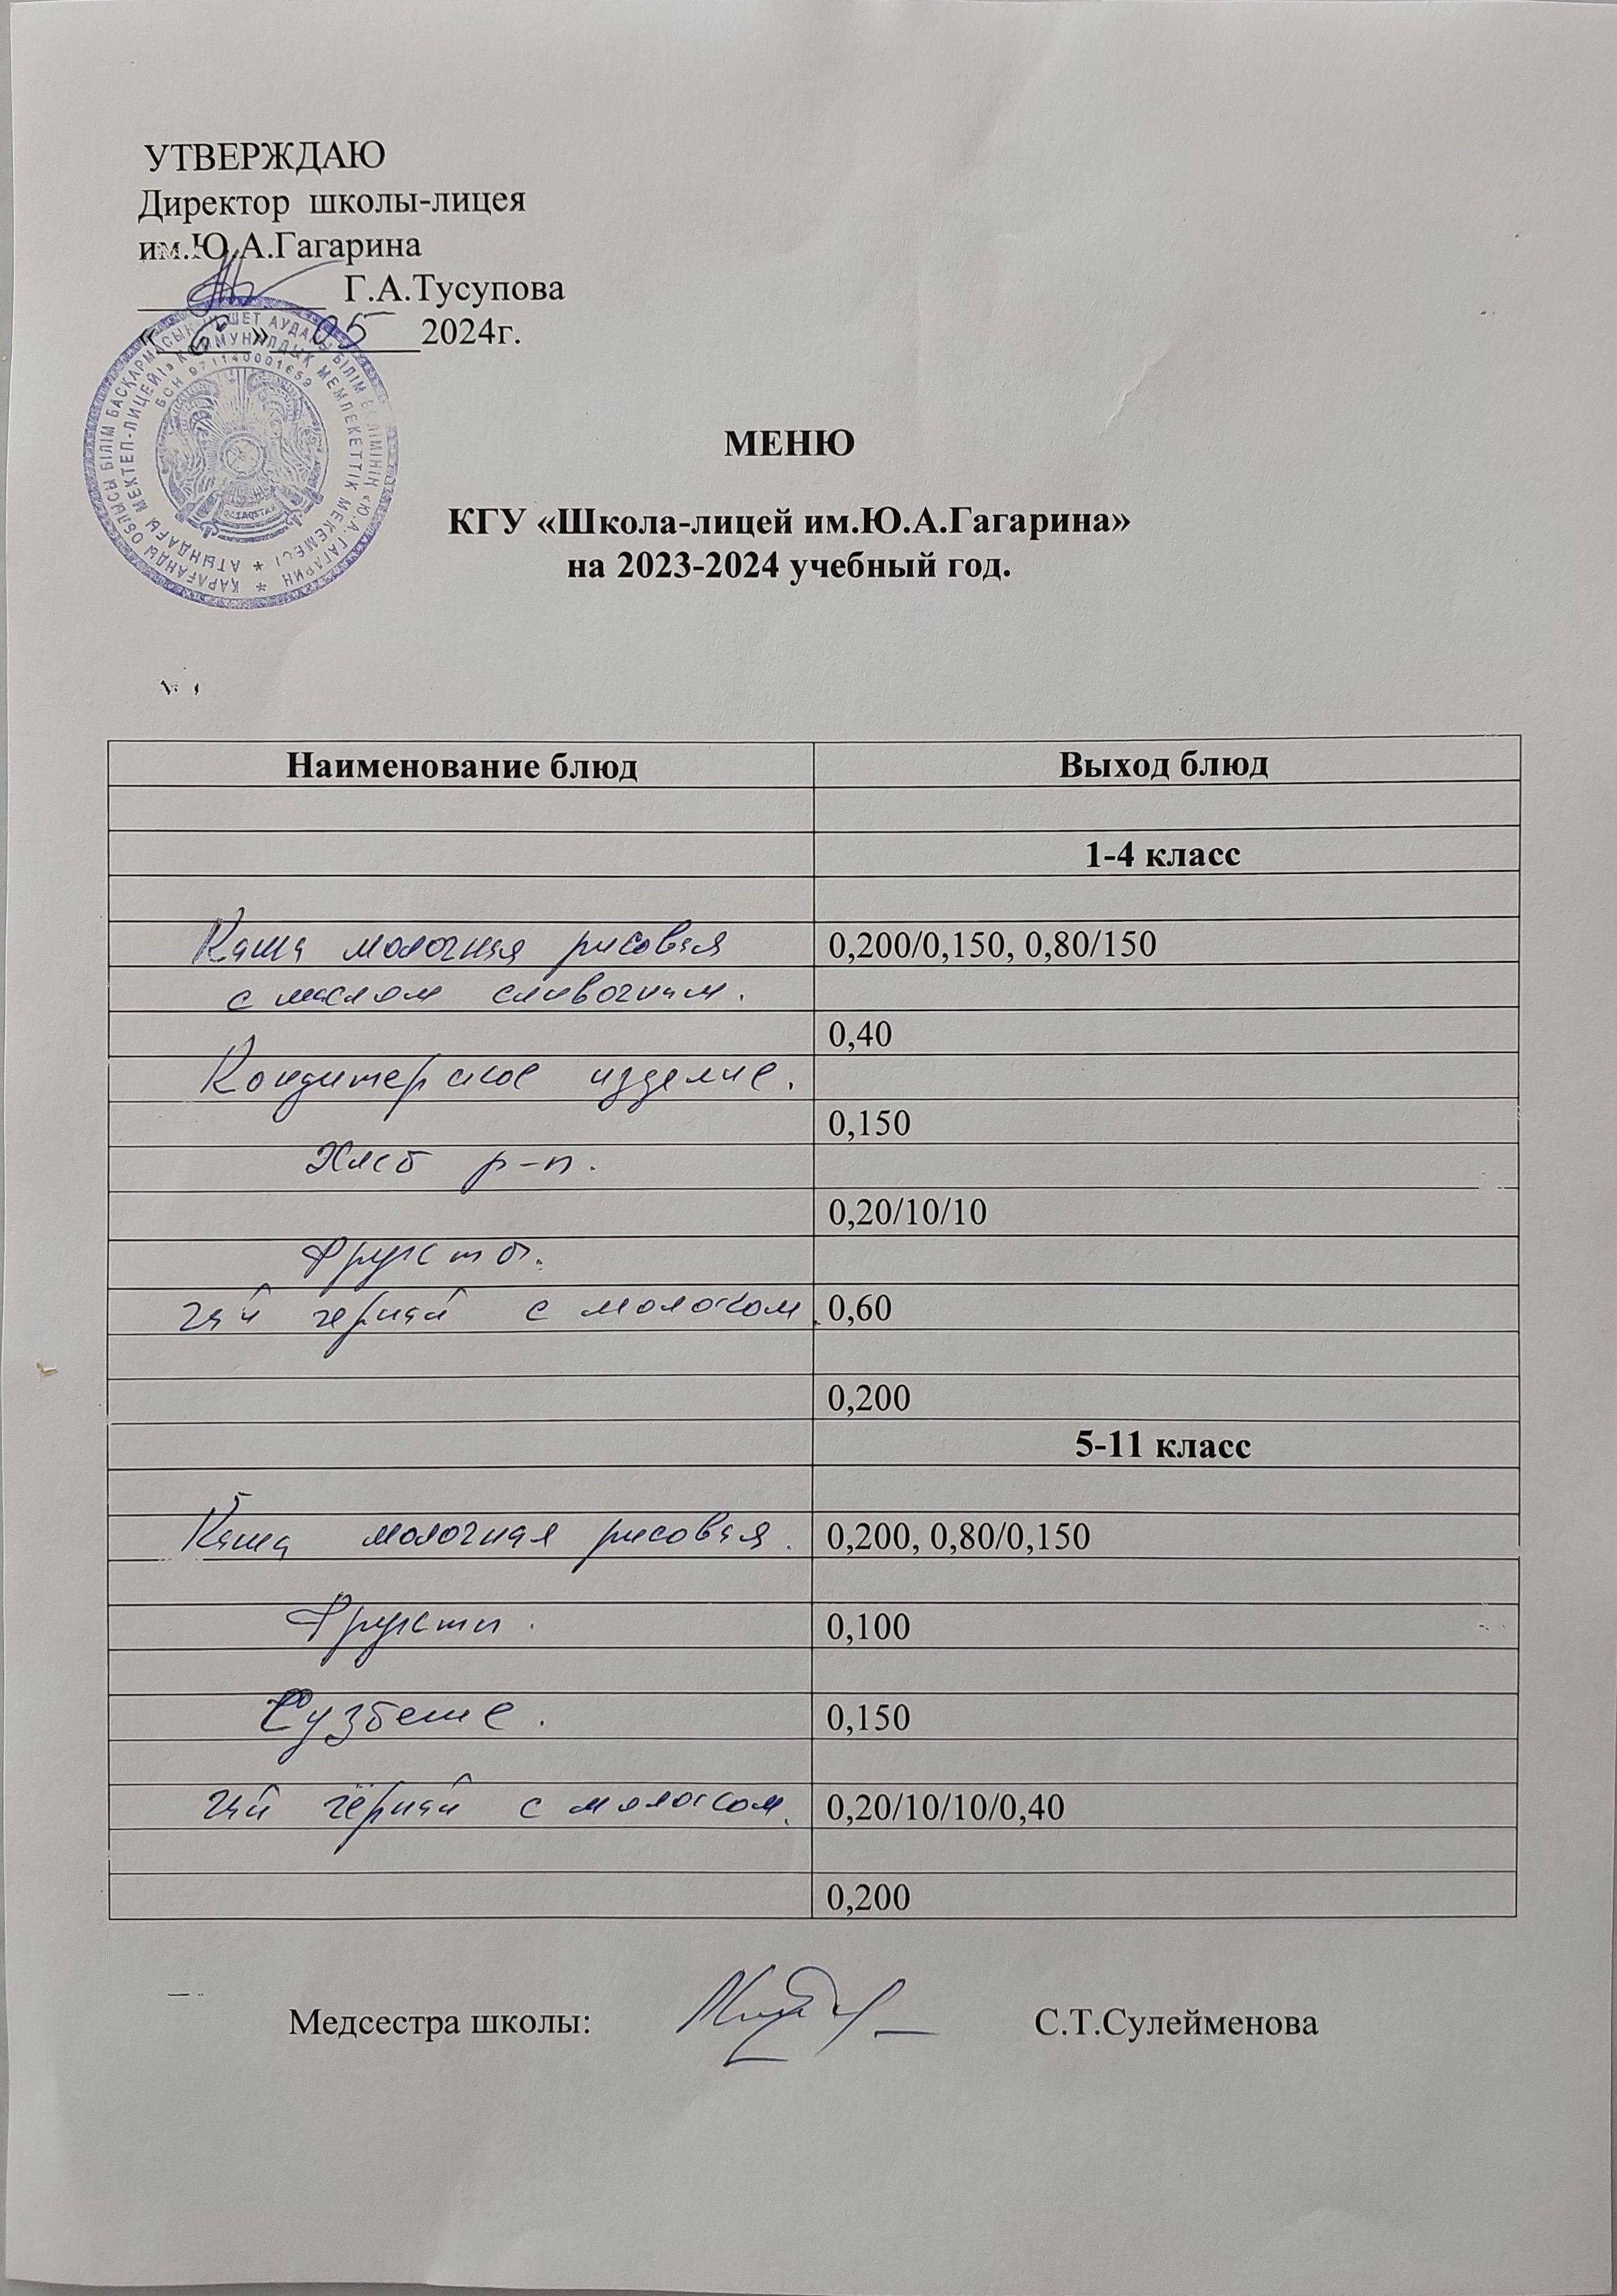 УТВЕРЖДАЮ
Директор школы-лицея
им.Ю.А.Гагарина
Г.А.Тусупова
«6» 05 2024г.
ҚАРАҒАНДЫ ОБЛЫСЫ БІЛІМ БАСҚАРМАСЫНЫҢ ШЕТ АУДАНЫ БІЛІМ БӨЛІМІНІҢ «Ю.А.ГАГАРИН
АТЫНДАҒЫ МЕКТЕП-ЛИЦЕЙІ» КОММУНАЛДЫҚ МЕМЛЕКЕТТІК МЕКЕМЕСІ
БСН 971140001659
МЕНЮ
КГУ «Школа-лицей им.Ю.А.Гагарина»
на 2023-2024 учебный год.
Наименование блюд Выход блюд
1-4 класс
Каша молочная рисовая 0,200/0,150, 0,80/150
с маслом сливочным.
0,40
Кондитерское изделие.
0,150
Хлеб р-п.
0,20/10/10
Фрукты.
чай чёрный с молоком. 0,60
0,200
5-11 класс
Каша молочная рисовая. 0,200, 0,80/0,150
Фрукты. 0,100
Сузбеше. 0,150
чай чёрный с молоком. 0,20/10/10/0,40
0,200
Медсестра школы: С.Т.Сулейменова